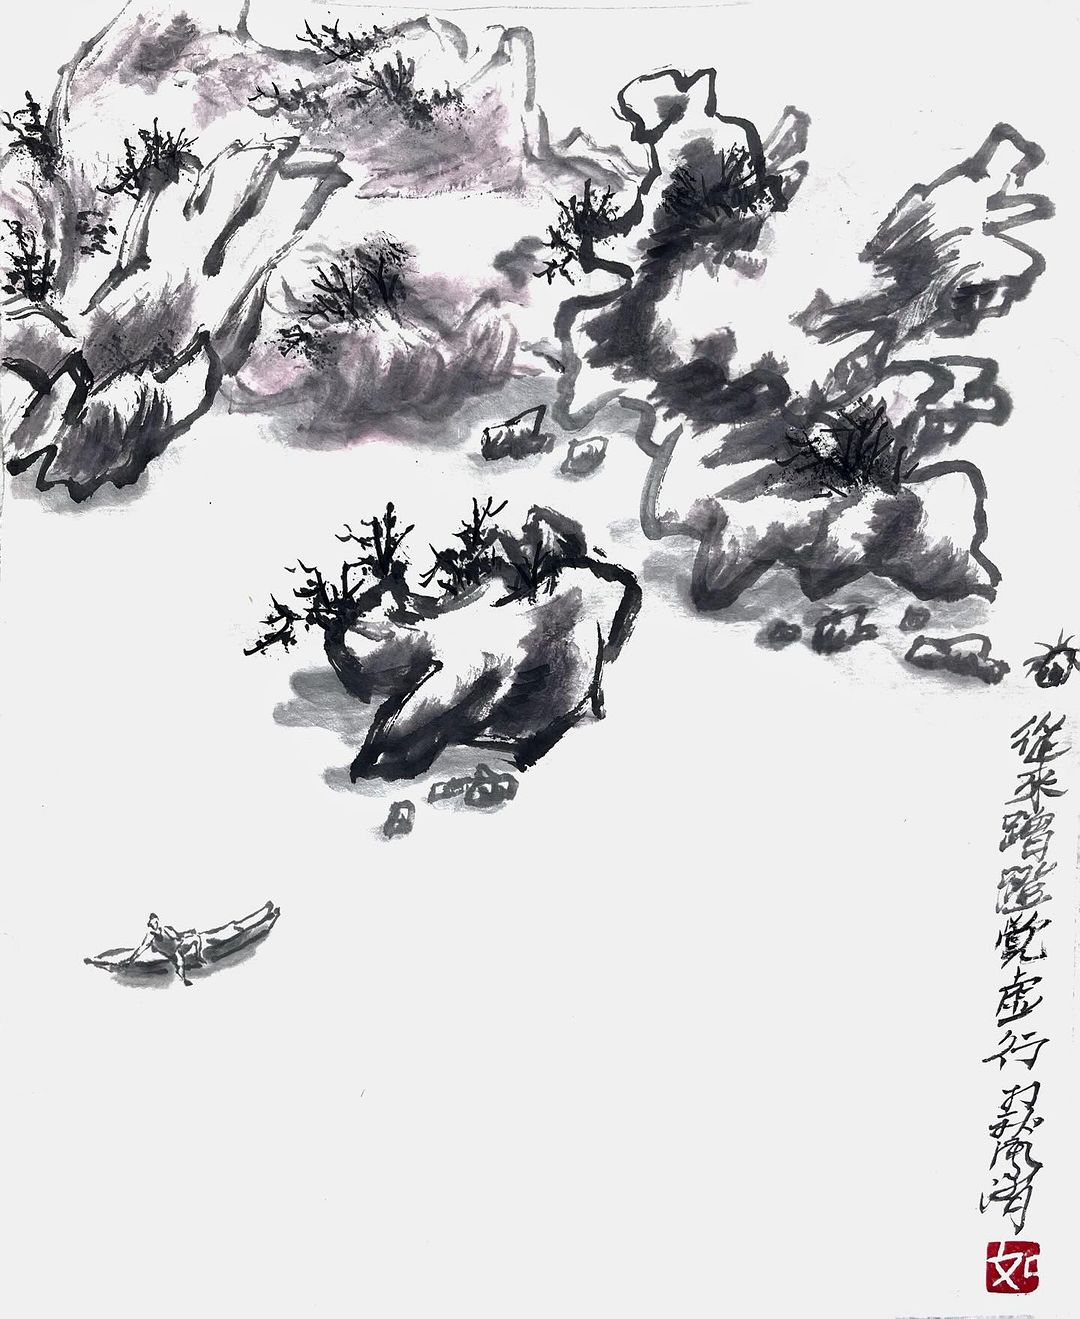 從來蹭蹬覺虛行
風清
如